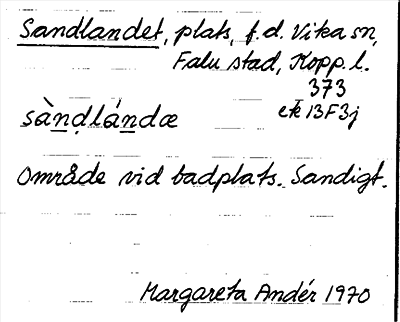 Sandlandet, plats, f.d. Vika sn,
Falu stad, Kopp. l.
373
ek 13F3j
sàndlándæ
Område vid badplats. Sandigt.
Margareta Andér 1970